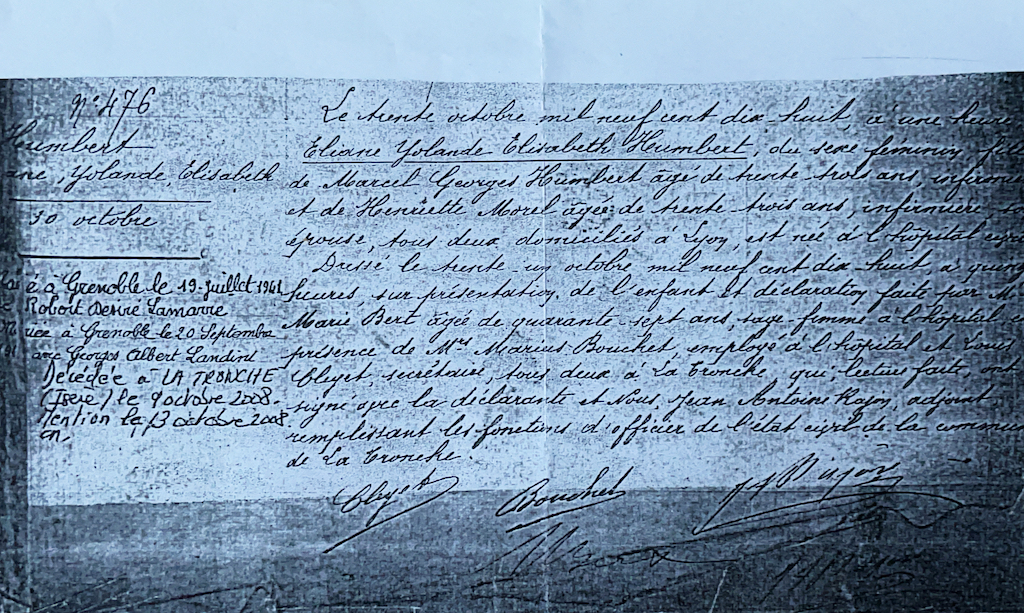 N° 476
Humbert
ane, Yolande, Elisabeth
30 octobre
é à Grenoble le 19 juillet 1941
Robert Désiré Lamarre
à Grenoble le 20 Septembre
avec Georges Albert Landini
Décédée à LA TRONCHE
(Isère) le 9 octobre 2008.
Mention le 13 octobre 2008.
Le trente octobre mil neuf cent dix huit, à une heure
Eliane Yolande Elisabeth Humbert, du sexe féminin, fille
de Marcel Georges Humbert âgé de trente trois ans, infirmier
et de Henriette Morel âgée de trente trois ans, infirmière,
épouse, tous deux domiciliés à Lyon, est née à l'hôpital
Dressé le trente un octobre mil neuf cent dix huit, à
heures, sur présentation de l'enfant et déclaration faite par
Marie Bert âgée de quarante-sept ans, sage-femme à l'hôpital
présence de Mrs Marius Bouchet, employé à l'hôpital et Louis
Cleyet, secrétaire, tous deux à La Tronche qui, lecture faite, ont
signé avec la déclarante et Nous, Jean Antoine, adjoint,
remplissant les fonctions d'officier de l'état civil de la commune
de La Tronche.
Cleyet Bouchet